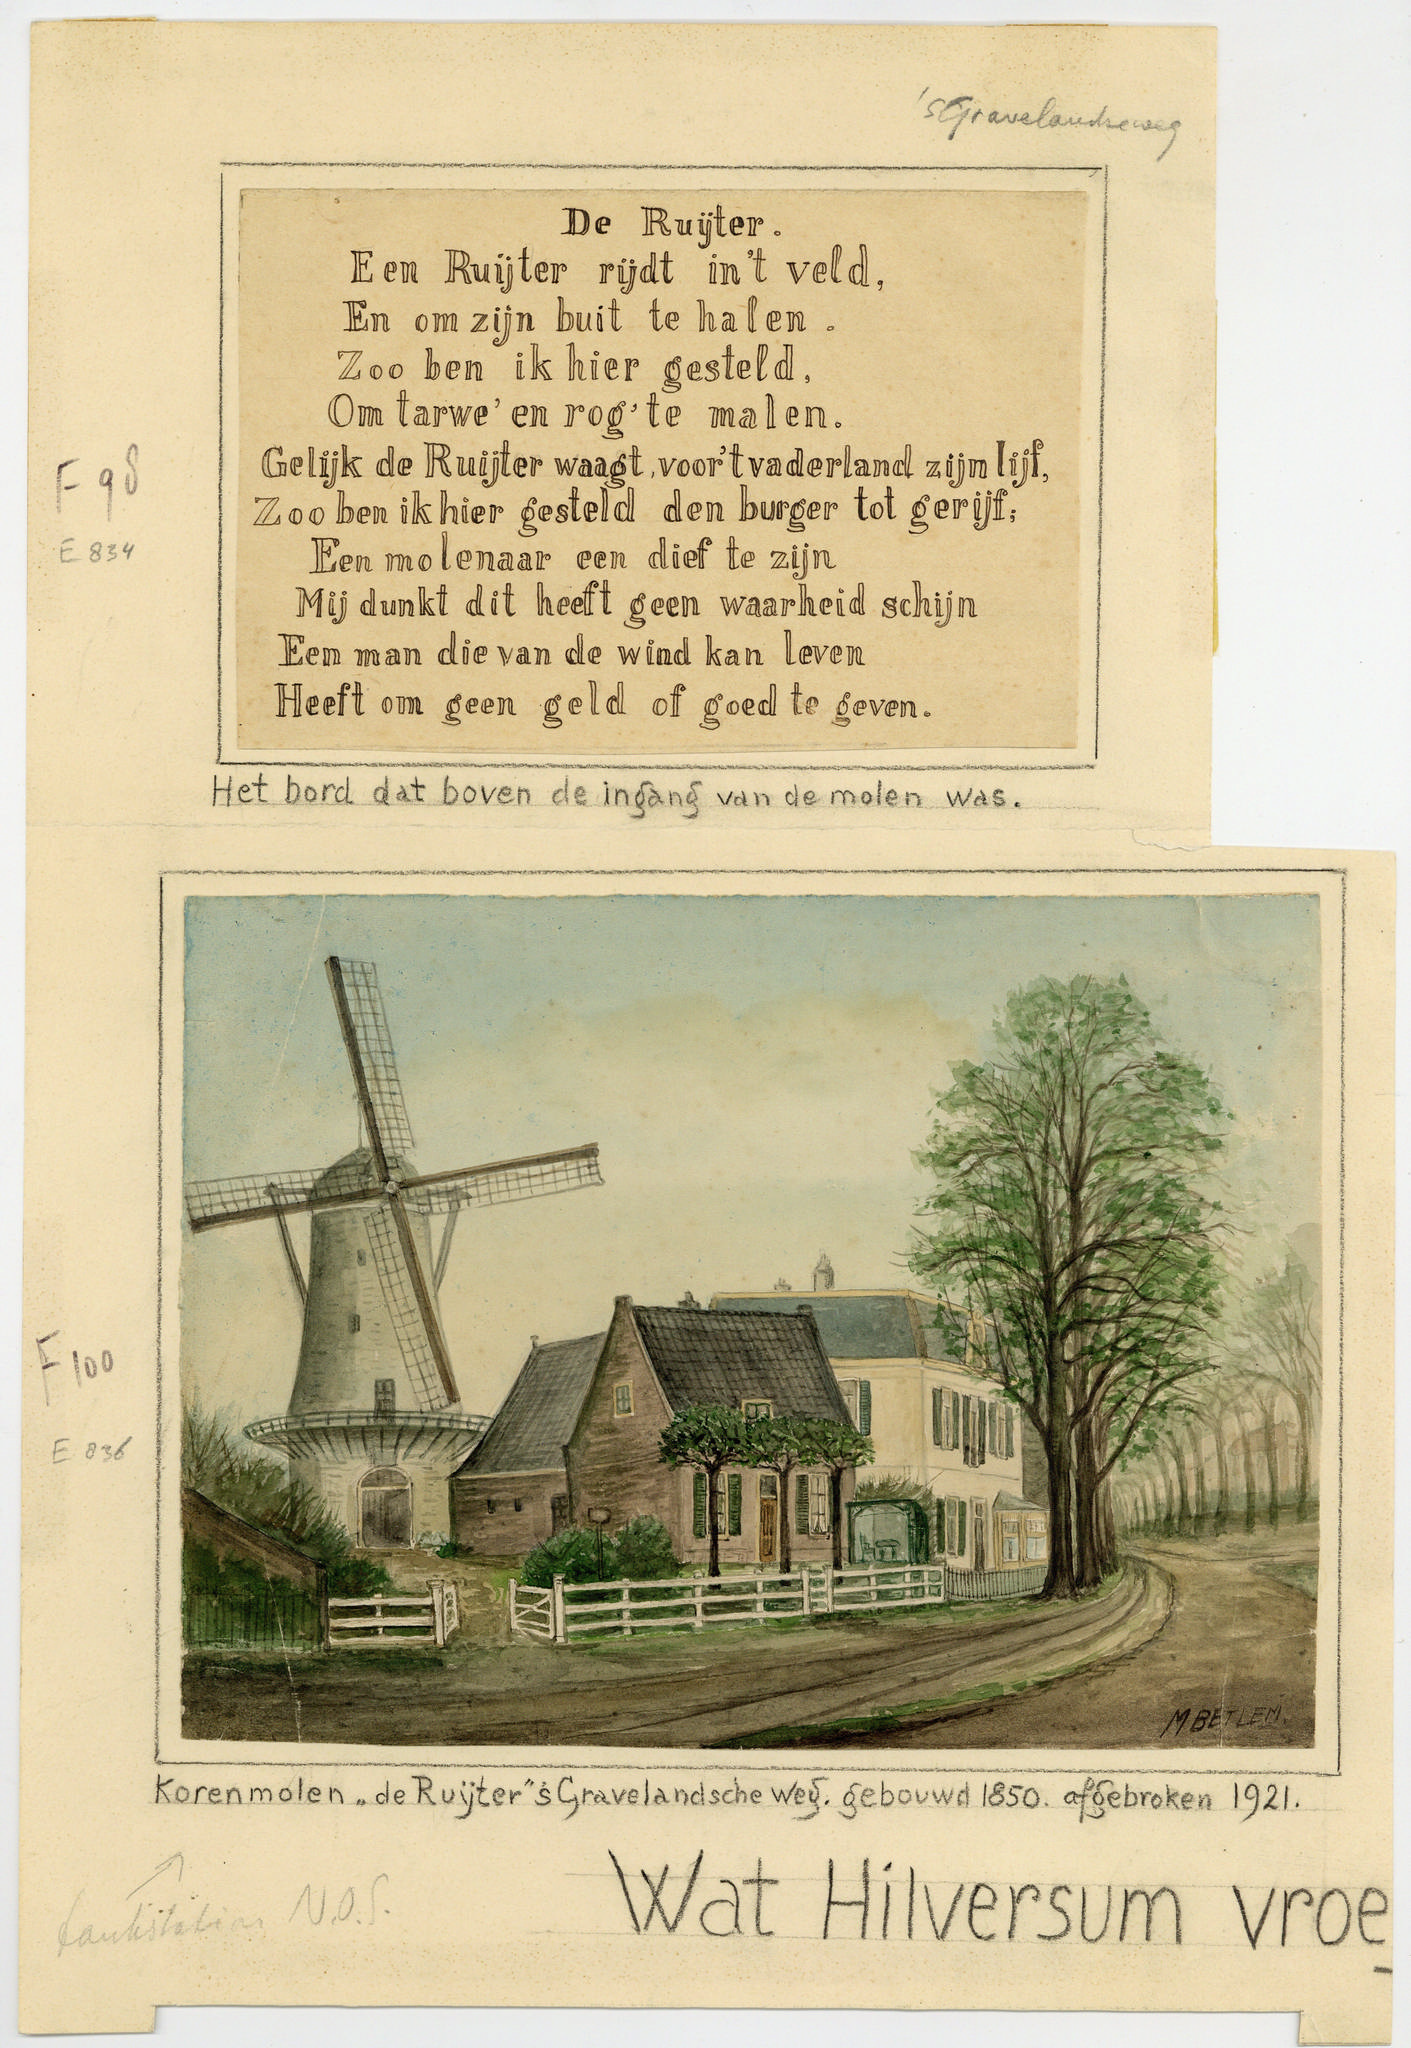 'sGravelandseweg
De Ruijter.
Een Ruijter rijdt in't veld,
En om zijn buit te halen.
Zoo ben ik hier gesteld,
Om tarwe' en rog' te malen.
Gelijk de Ruijter waagt, voor't vaderland zijn lijf,
Zoo ben ik hier gesteld den burger tot gerijf;
Een molenaar een dief te zijn
Mij dunkt dit heeft geen waarheid schijn
Een man die van de wind kan leven
Heeft om geen geld of goed te geven.
F 98
E 834
Het bord dat boven de ingang van de molen was.
F 100
E 836
M BETLEM.
Korenmolen „de Ruijter” 's Gravelandsche weg. gebouwd 1850. afgebroken 1921.
N.O.S.
Wat Hilversum vroe